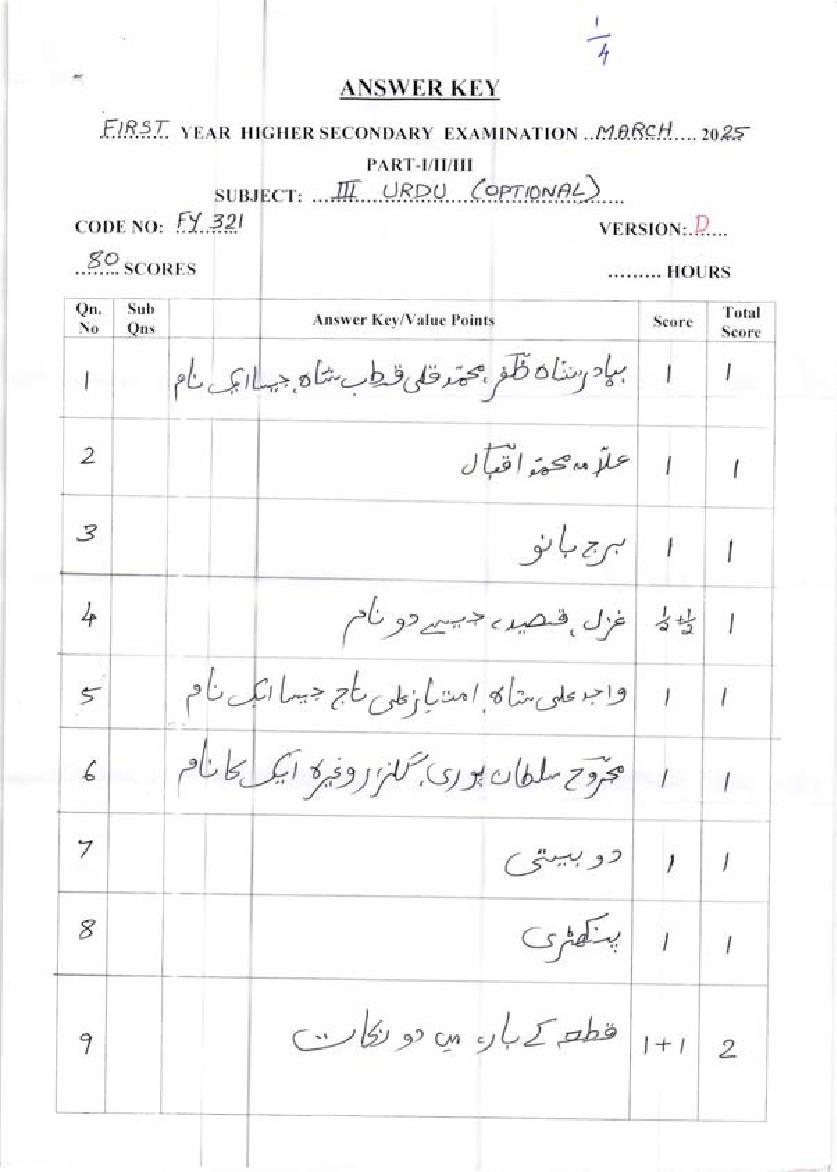 1/4
ANSWER KEY
FIRST YEAR HIGHER SECONDARY EXAMINATION ..MARCH..... 2025
PART-I/II/III
SUBJECT: ...III URDU (OPTIONAL)......
CODE NO: FY 321 VERSION:.D.....
..80.. SCORES .......... HOURS
Qn. No Sub Qns Answer Key/Value Points Score Total Score
1 بہادر شاہ ظفر، محمد قلی قطب شاہ، جیسا ایک نام 1 1
2 علامہ محمد اقبال 1 1
3 برج بانو 1 1
4 غزل، قصیدہ، جیسے دو نام ½+½ 1
5 واجد علی شاہ، امتیاز علی تاج جیسا ایک نام 1 1
6 مجروح سلطان پوری، گلزار وغیرہ ایک کا نام 1 1
7 دو بیتی 1 1
8 پنکھڑی 1 1
9 قطعہ کے بارے میں دو نکات 1+1 2